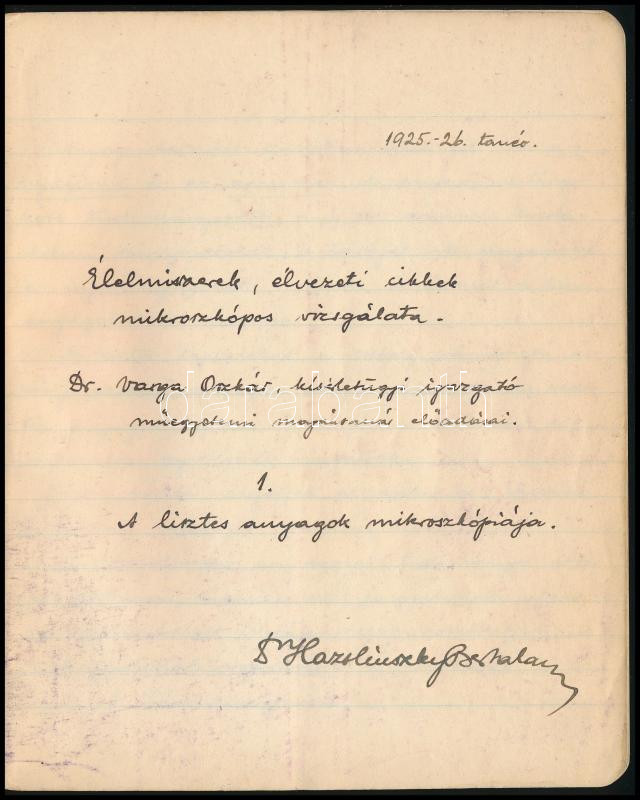 1925.-26. tanév.
Élelmiszerek, élvezeti cikkek
mikroszkópos vizsgálata.
Dr. Varga Oszkár, kísérletügyi igazgató
műegyetemi magántanár előadásai.
1.
A lisztes anyagok mikroszkópiája.
Dr Hazslinszky Bertalan
darabanth